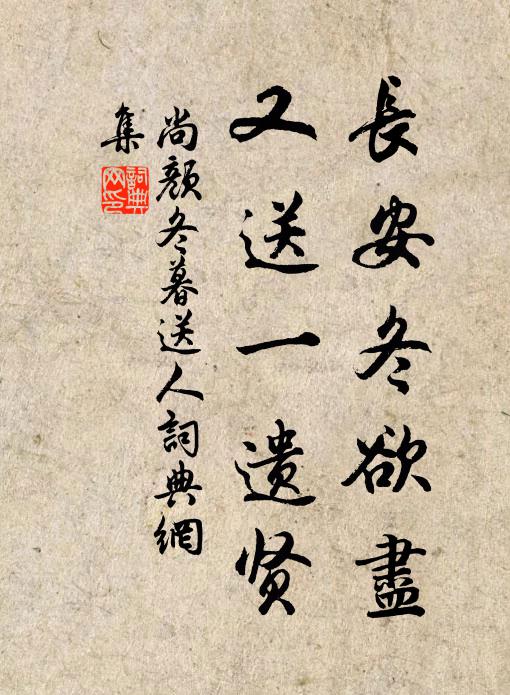 長安冬欲盡
又送一遗贤
尚顔冬暮送人詞典網
集
詞典网印